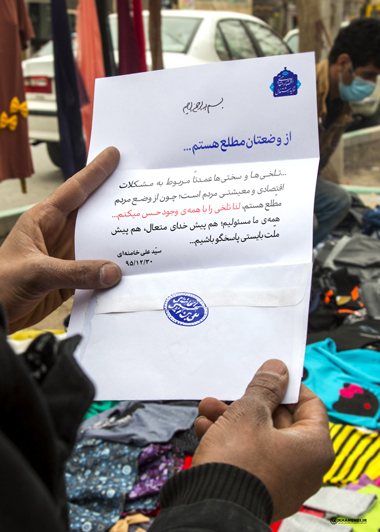 بسم الله الرحمن الرحیم
از وضعتان مطلع هستم...
...تلخی‌ها و سختی‌ها عمدتاً مربوط به مشکلات
اقتصادی و معیشتی مردم است؛ چون از وضع مردم
مطلع هستم، لذا تلخی را با همه‌ی وجود حس میکنم...
همه‌ی ما مسئولیم؛ هم پیش خدای متعال، هم پیش
ملّت بایستی پاسخگو باشیم...
سیّد علی خامنه‌ای
۹۵/۱۲/۳۰